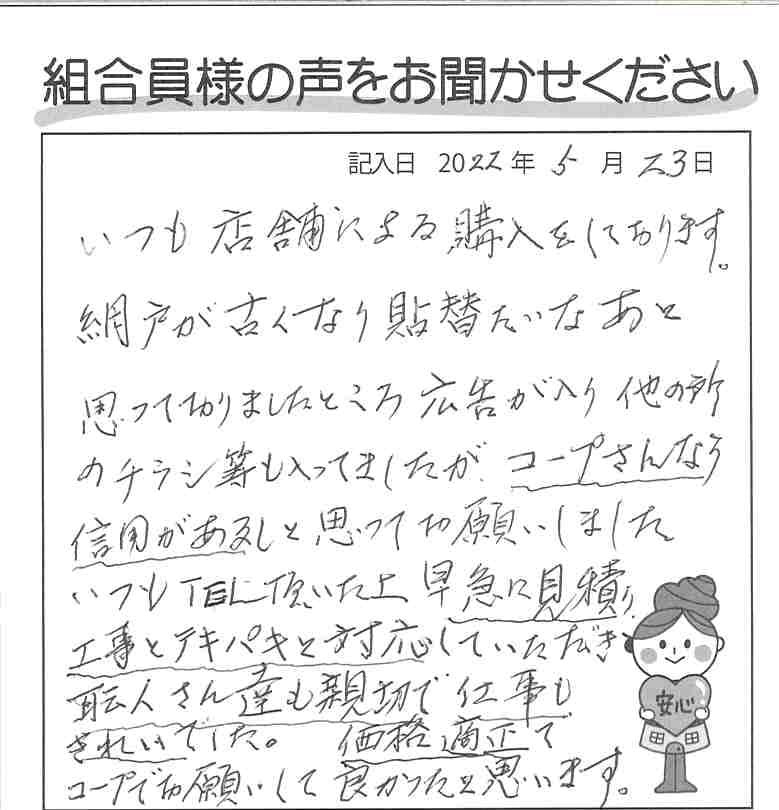 組合員様の声をお聞かせください
記入日 2022年5月23日
いつも店舗による購入をしております。
網戸が古くなり貼替たいなあと
思っておりましたところ広告が入り他の所
のチラシ等も入ってましたが、コープさんなら
信用があるしと思ってお願いしました
いつもTEL頂いた上早急に見積り
工事とテキパキと対応していただき
職人さん達も親切で仕事も
きれいでした。 価格適正で
コープでお願いして良かったと思います。
安心